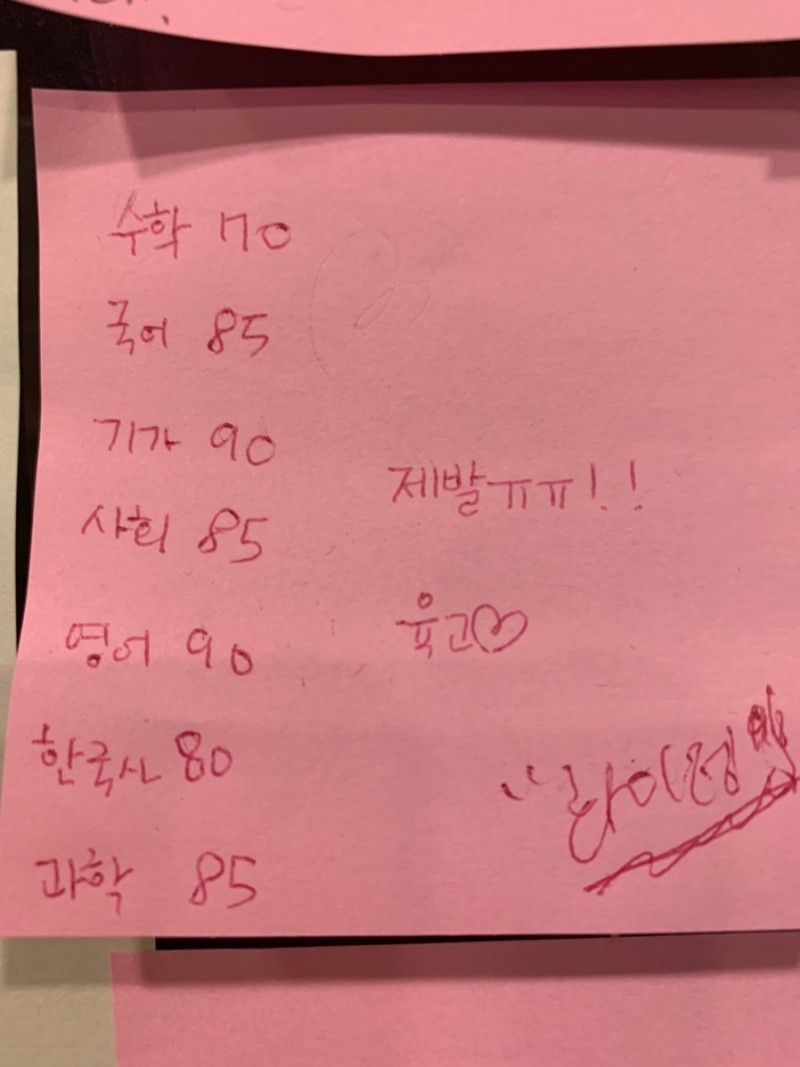 수학 70
국어 85
기가 90
사회 85
영어 90
한국사 80
과학 85
제발ㅠㅠ!!
육고♡